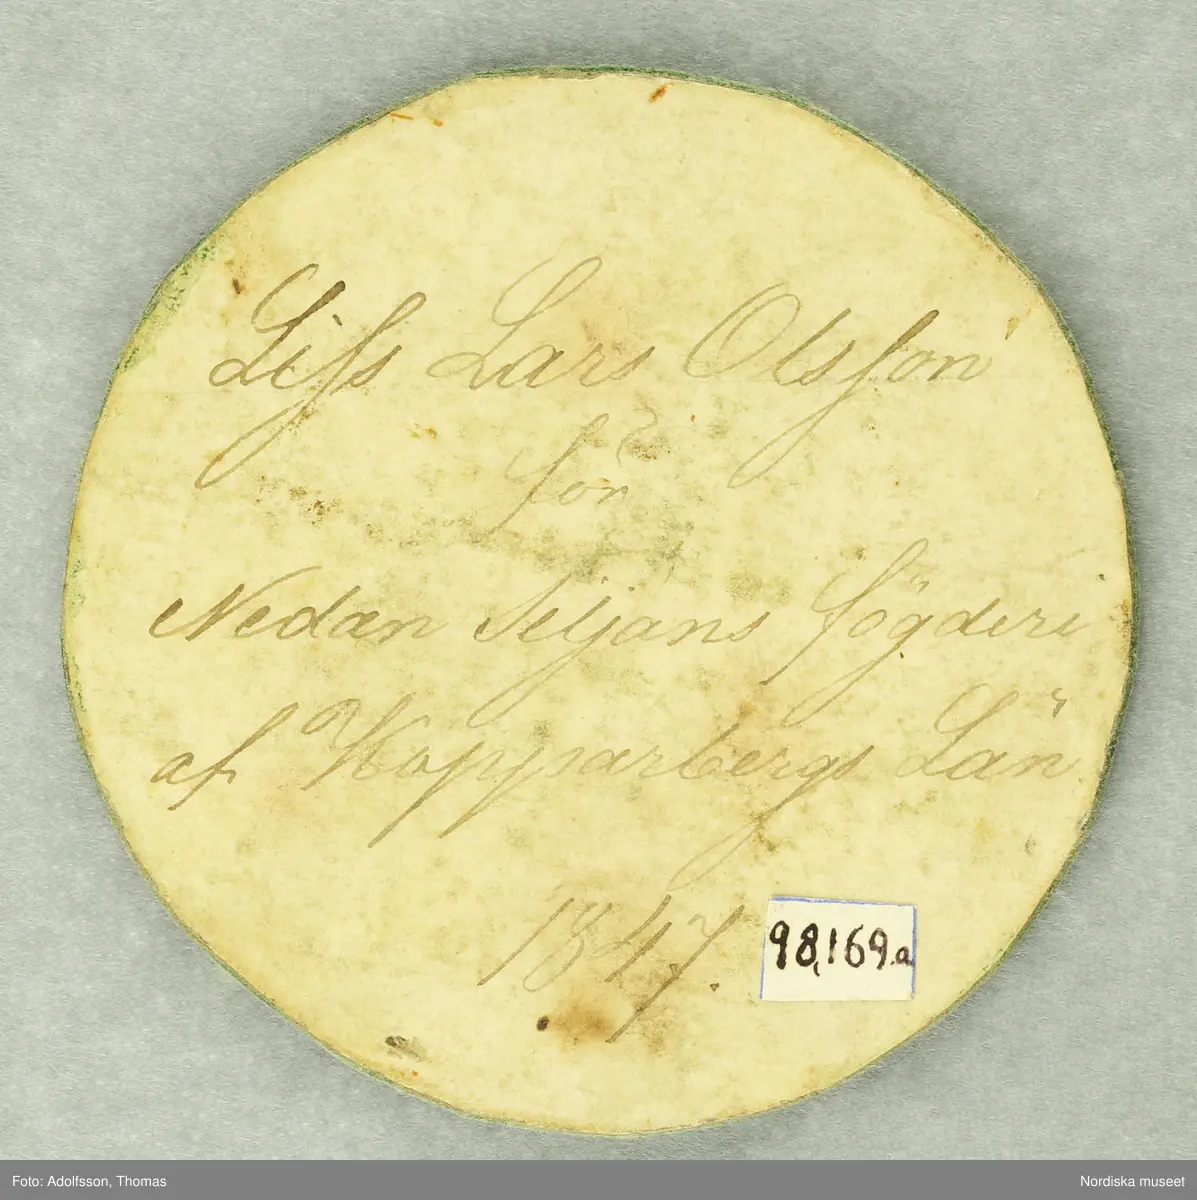 Liss Lars Olsson
för
Nedan Seljans fögderi
af Kopparbergs Län
1847.
98,169.a
Foto: Adolfsson, Thomas
Nordiska museet